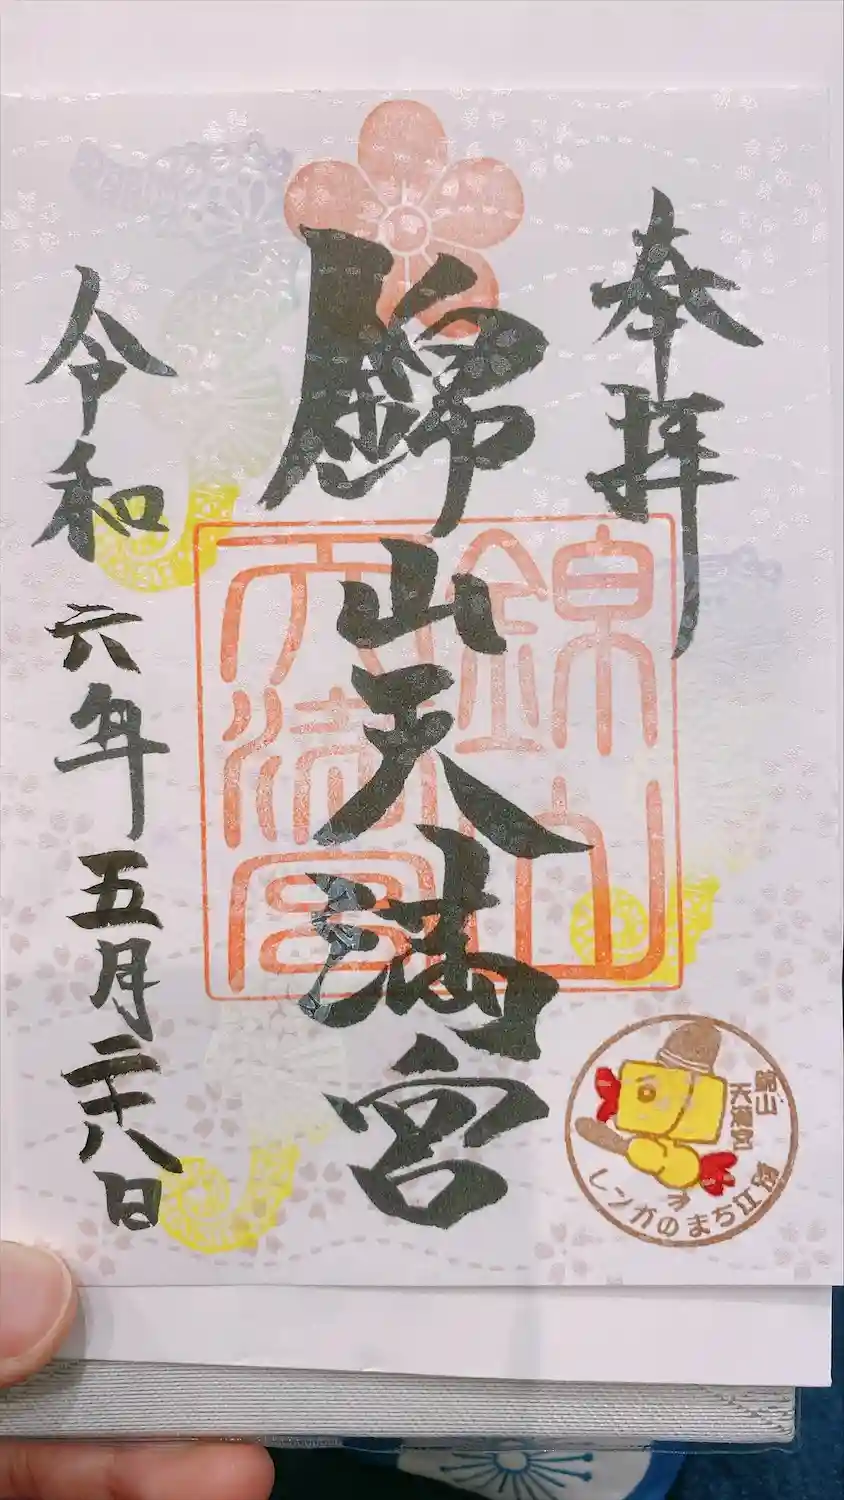 奉拝
錦山天満宮
令和六年五月二十八日
錦山天満宮
錦山
天満宮
レンガのまち江別